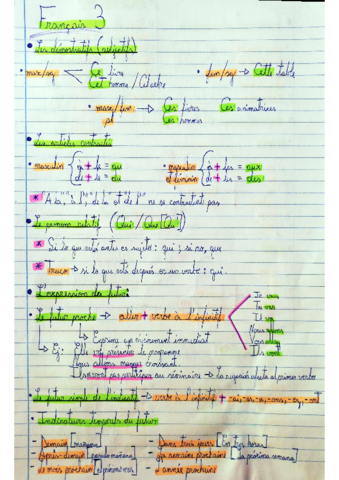 Français 3
• Les démonstratifs (adjectifs)
• masc/sg < Ce livre • fem/sg → Cette table
Cet homme / Cet arbre
• masc/fem → Ces livres Ces animatrices
pl Ces hommes
• Les articles contractés
• masculin { à + le = au • masculin { à + les = aux
de + le = du et féminin de + les = des
* À la, à l', de la et de l' ne se contractent pas
• Le pronom relatif (Qui / Que [Qu'])
* Si lo que está antes es sujeto: qui ; si no, que
* Truco → si lo que está después es un verbo: qui.
• L'expression du futur
• Le futur proche → aller + verbe à l'infinitif
Je vais
Tu vas
Il va
Nous allons
Vous allez
Ils vont
↳ Exprime un événement immédiat
↳ Ej: Elle va présenter le programme
Nous allons manger croissant
→ La negación afecta al primer verbo
• Le futur simple de l'indicatif → verbe à l'infinitif + -ai, -as, -a, -ons, -ez, -ont
• Indicateurs temporels du futur
- Demain [mañana] - Dans trois jours [En tres horas]
- Après-demain [pasado mañana] - La semaine prochaine [la próxima semana]
- Le mois prochain [el próximo mes] - L'année prochaine